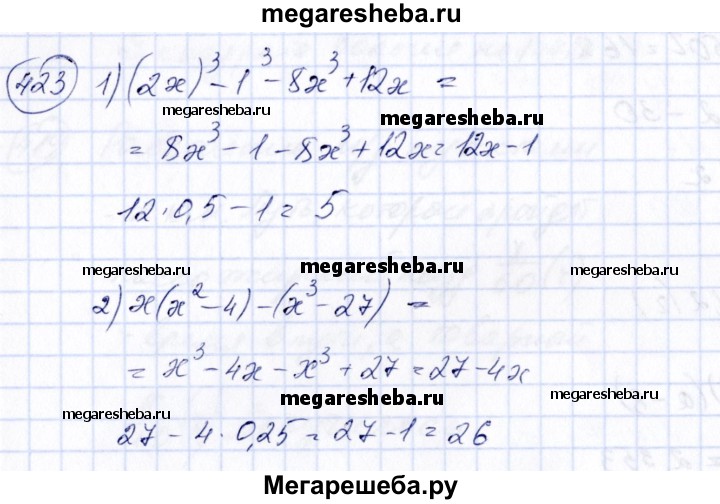 megaresheba.ru
423 1) (2x)³ - 1³ - 8x³ + 12x =
megaresheba.ru megaresheba.ru
= 8x³ - 1 - 8x³ + 12x = 12x - 1
12 · 0,5 - 1 = 5
megaresheba.ru megaresheba.ru megaresheba.ru
2) x(x² - 4) - (x³ - 27) =
= x³ - 4x - x³ + 27 = 27 - 4x
megaresheba.ru megaresheba.ru megaresheba.ru
27 - 4 · 0,25 = 27 - 1 = 26
Мегарешеба.ру